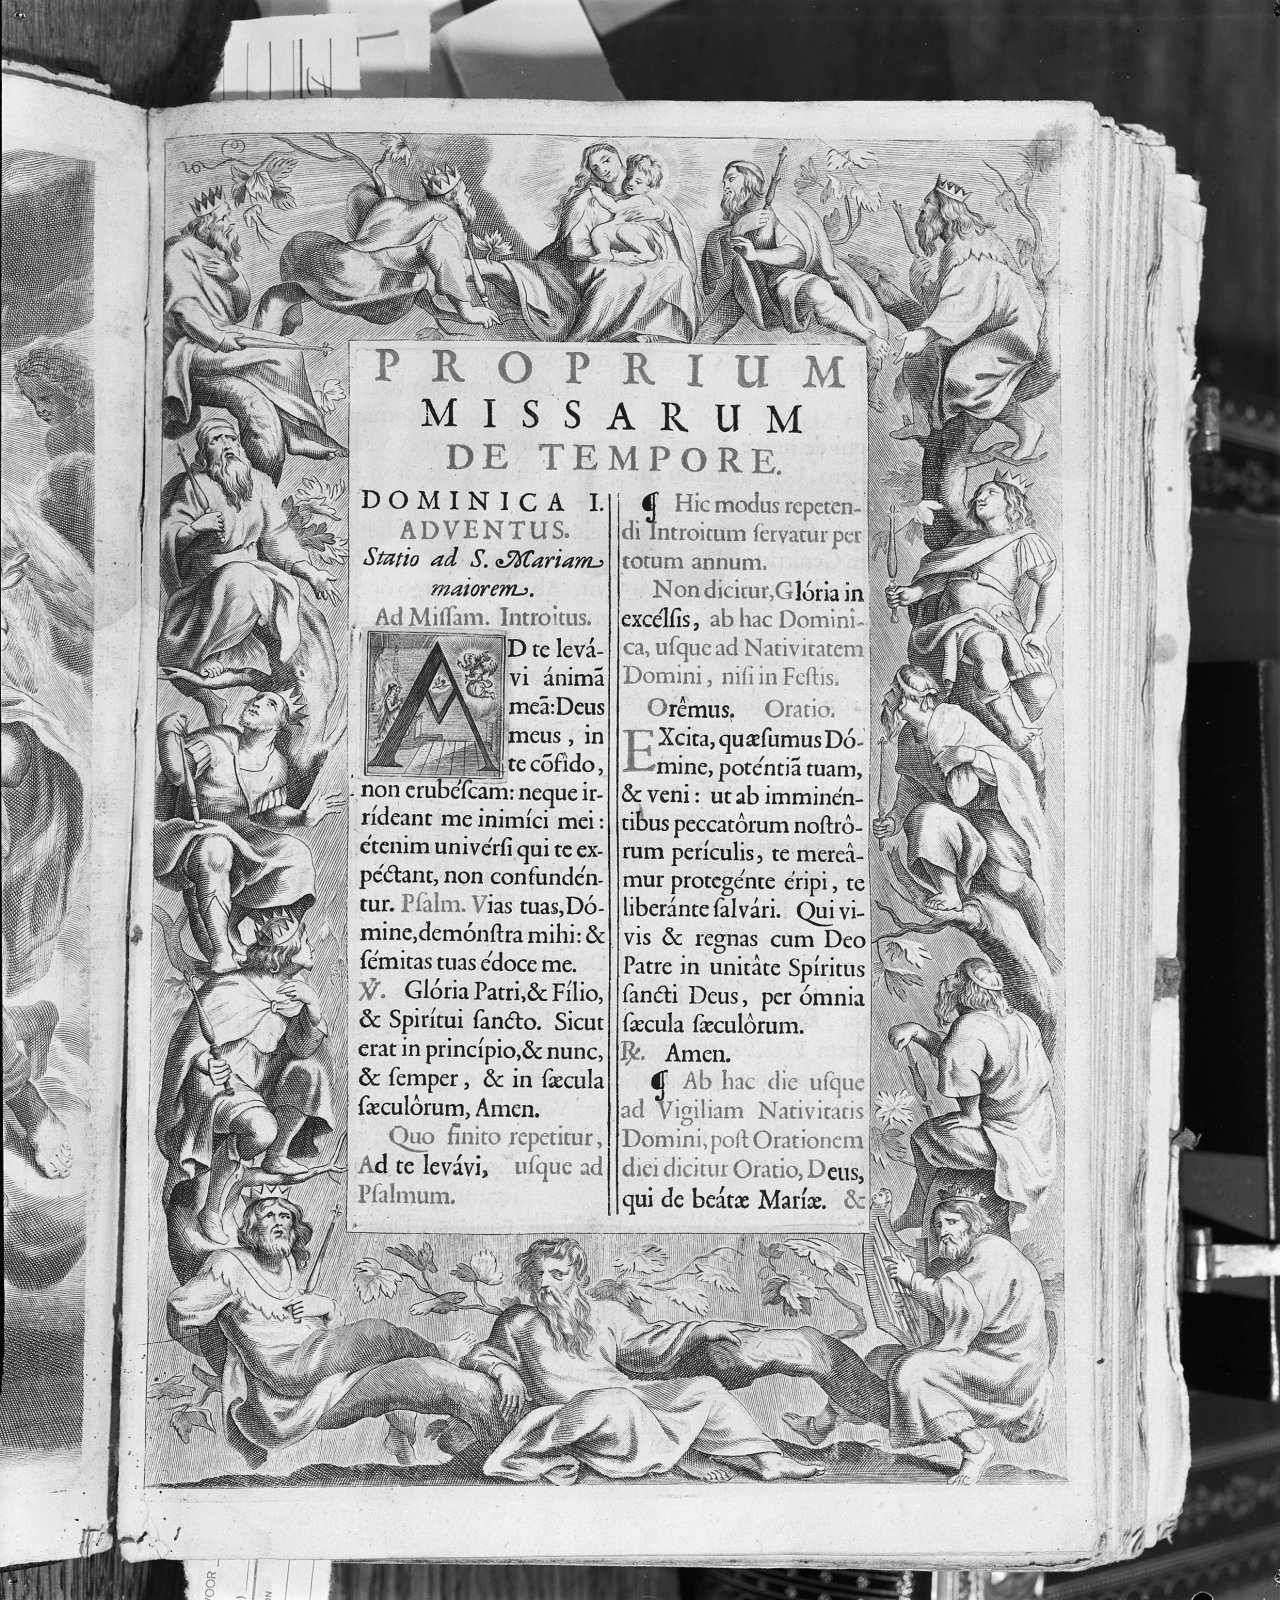 PROPRIUM
MISSARUM
DE TEMPORE.
DOMINICA I.
ADVENTUS.
Statio ad S. Mariam
maiorem.
Ad Miſſam. Introitus.
AD te levá-
vi ánimã
meã: Deus
meus, in
te cõfido,
non erubéſcam: neque ir-
rídeant me inimíci mei:
étenim univérſi qui te ex-
péctant, non confundén-
tur. Pſalm. Vias tuas, Dó-
mine, demónſtra mihi: &
ſémitas tuas édoce me.
℣. Glória Patri, & Fílio,
& Spirítui ſancto. Sicut
erat in princípio, & nunc,
& ſemper, & in ſæcula
ſæculôrum, Amen.
Quo finito repetitur,
Ad te levávi, uſque ad
Pſalmum.
¶ Hic modus repeten-
di Introitum ſervatur per
totum annum.
Non dicitur, Glória in
excélſis, ab hac Domini-
ca, uſque ad Nativitatem
Domini, niſi in Feſtis.
Orêmus. Oratio.
EXcita, quæſumus Dó-
mine, poténtiã tuam,
& veni: ut ab imminén-
tibus peccatôrum noſtrô-
rum perículis, te mereâ-
mur protegénte éripi, te
liberánte ſalvári. Qui vi-
vis & regnas cum Deo
Patre in unitâte Spíritus
ſancti Deus, per ómnia
ſæcula ſæculôrum.
℟. Amen.
¶ Ab hac die uſque
ad Vigiliam Nativitatis
Domini, poſt Orationem
diei dicitur Oratio, Deus,
qui de beátæ Maríæ. &
VOOR